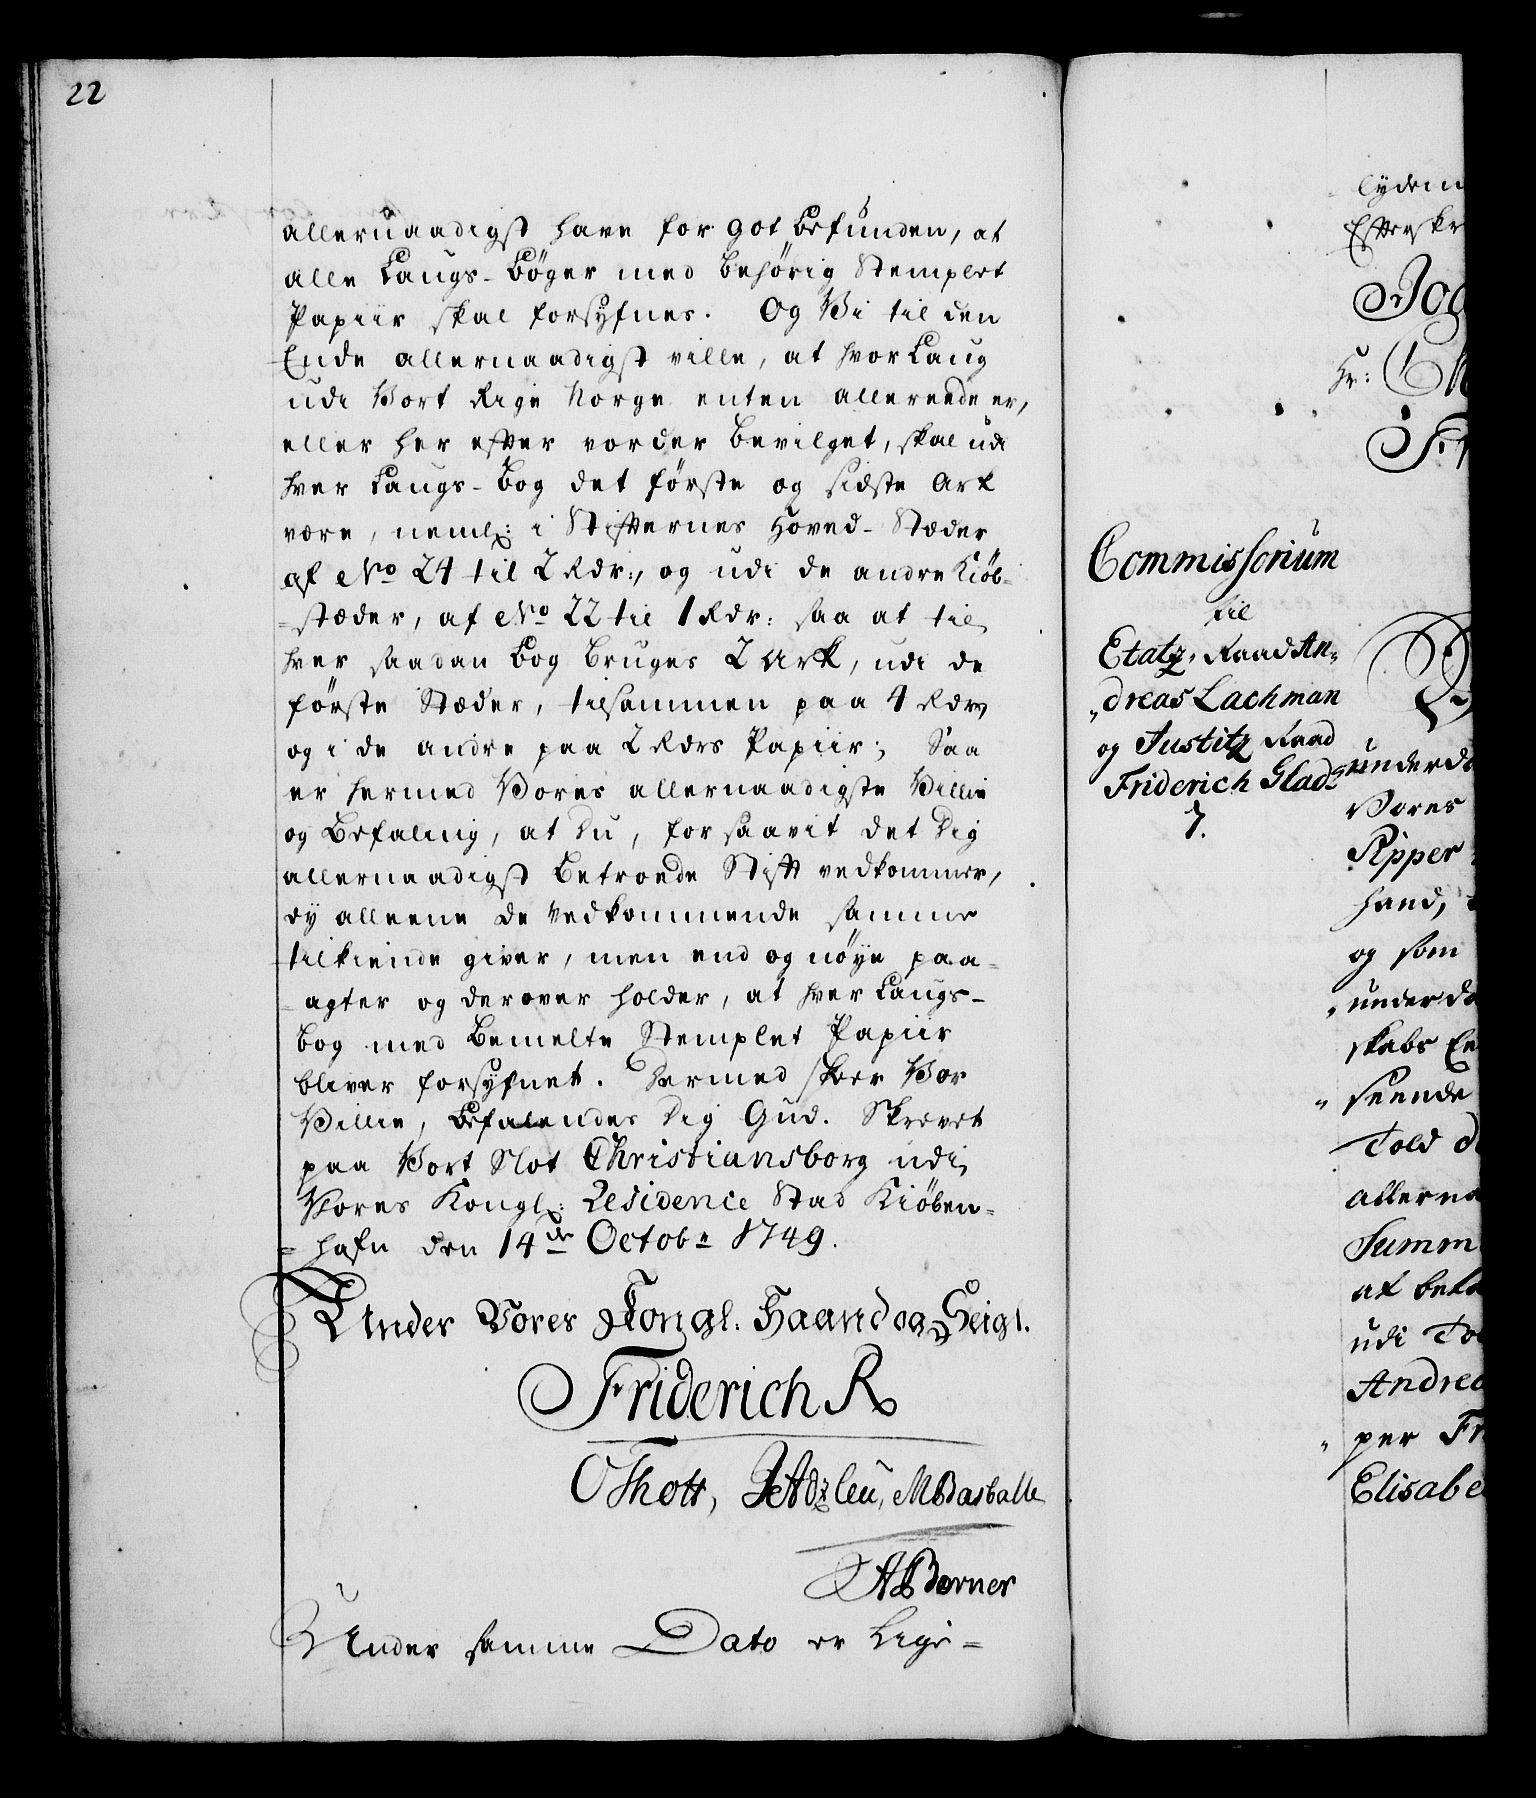 22
allernaadigst have for got befunden, at
alle Laugs-Bøger med behørig Stemplet
Papiir skal forsyfnes. Og Vi til den
Ende allernaadigst ville, at hvor Laug
udi Vort Rige Norge enten allereede er,
eller her effter vorder bevilget, skal udi
hver Laugs-Bog det første og sidste Ark
være, neml: i Stiffternes Hoved-Stæder
af No 24 til 2 Rdr:, og udi de andre Kiøb-
=stæder, af No 22 til 1 Rdr: saa at til
hver saadan Bog bruges 2 Ark, udi de
første Stæder, tilsammen paa 4 Rdrs
og i de andre paa 2 Rdrs Papiir; Saa
er hermed Vores allernaadigste Villie
og Befaling, at Du, forsaavit det Dig
allernaadigst betroede Stifft vedkommer,
ey alleene de Vedkommende samme
tilkiende giver, men end og nøye paa-
-agter og derover holder, at hver Laugs-
bog med bemelte Stemplet Papiir
bliver forsyfnet. Dermed skeer Vor
Villie, Befalendes Dig Gud. Skrevet
paa Vort Slot Christiansborg udi
Vores Kongl: Residence Stad Kiøben-
=hafn den 14de Octobr 1749.
Under Vores Kongl: Haand og Seigl.
Friderich R
O Thott, , M Basballe
A Berner
Under samme Dato er Lige=
Commissorium
til
Etatz-Raad An-
"dreas Lachman
og Justitz Raad
Friderich Glad:
7.
lydem
Effterskr
Hr:
underda
Vores
Ripper
haand,
og som
"underda
skabs En
"seende
Told d
allerna
Summ
at beta
udi To
Andrea
"per Fr
Elisabe